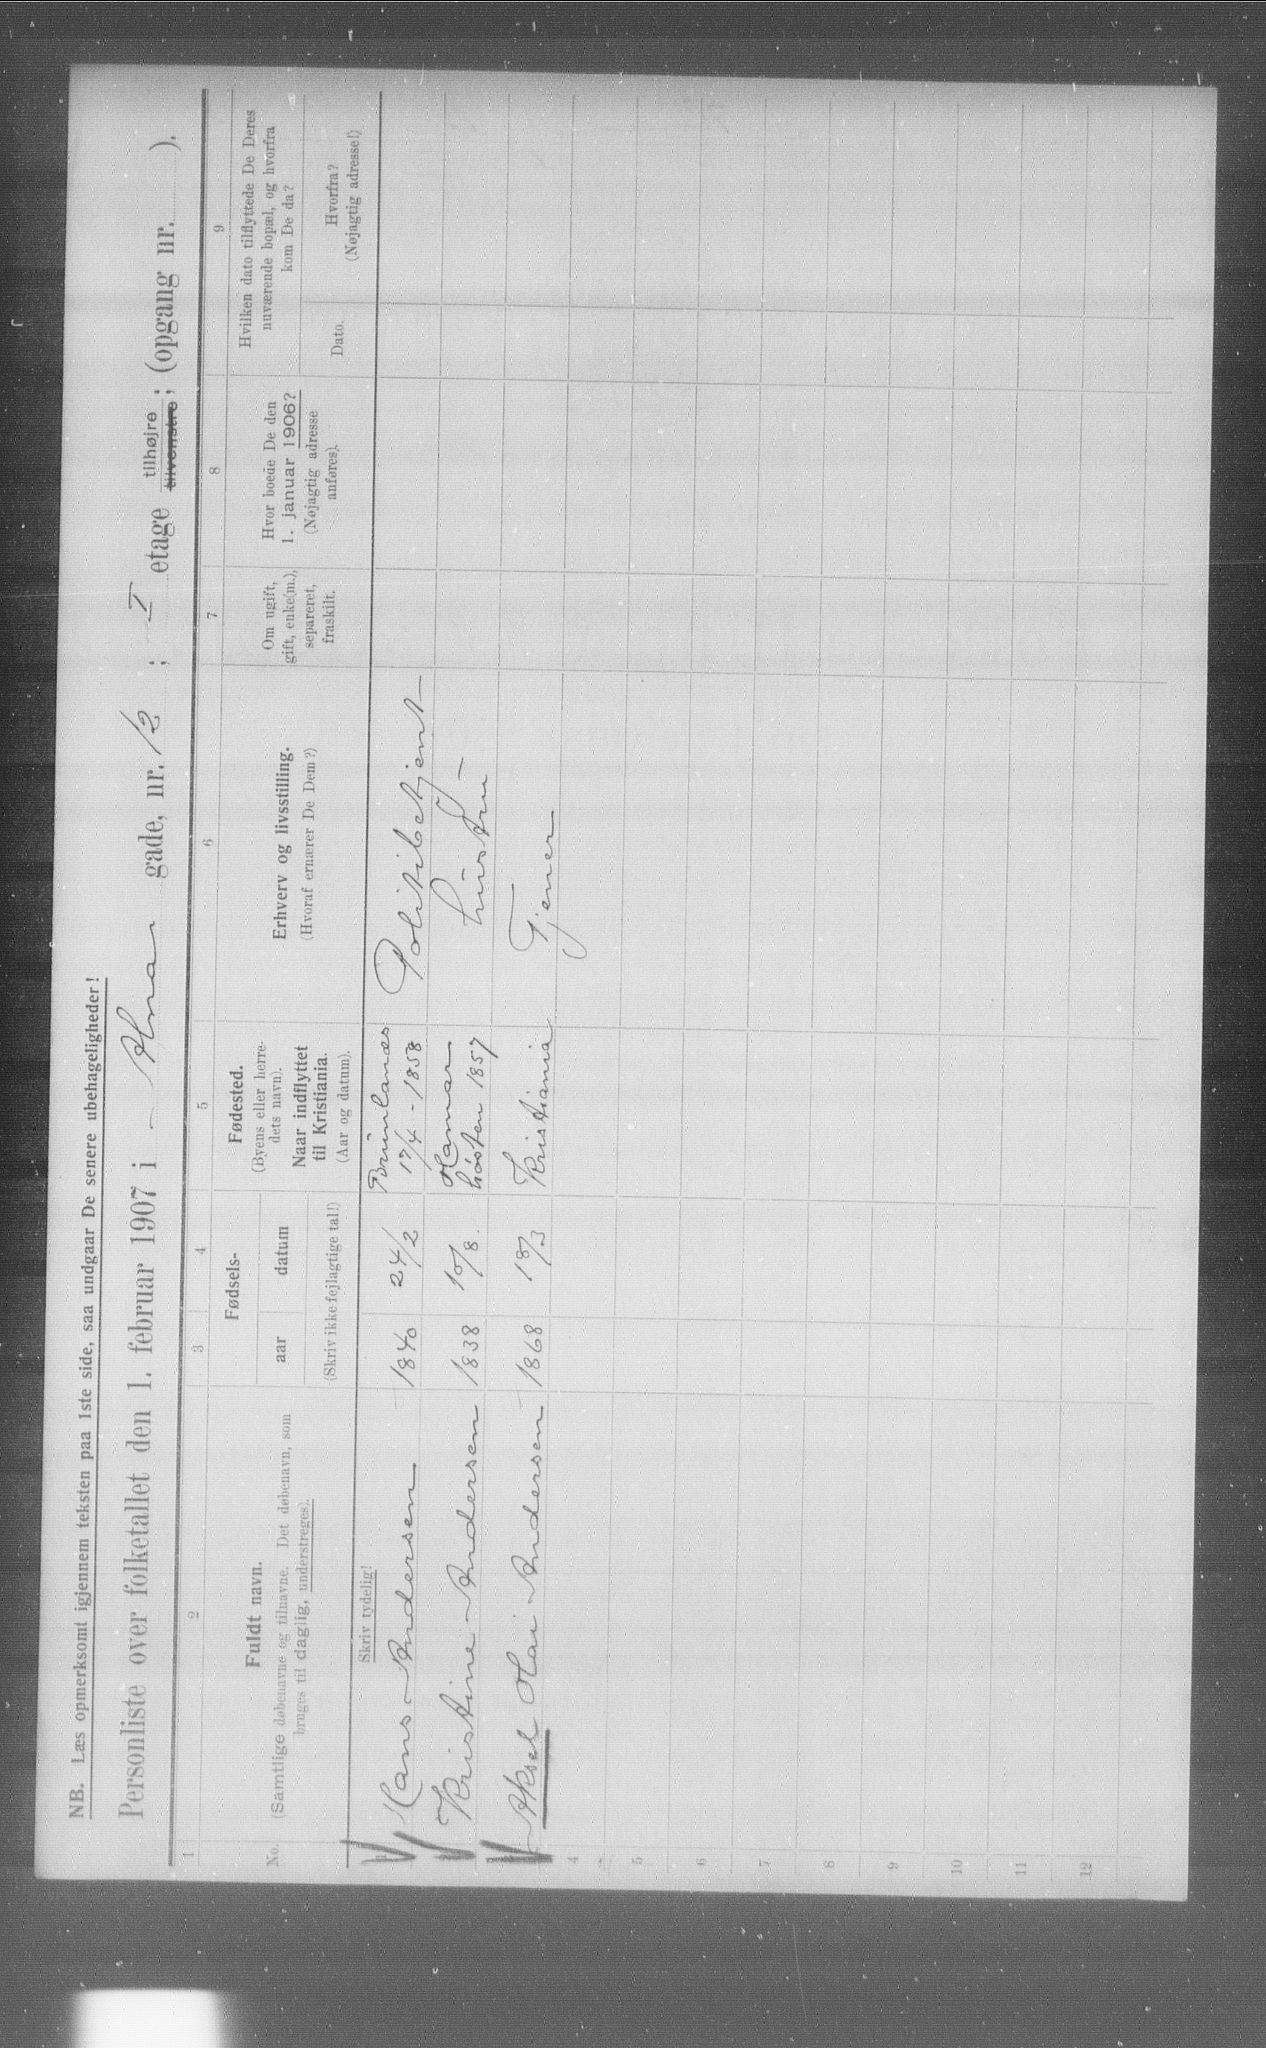 NB. Læs opmerksomt igjennem teksten paa 1ste side, saa undgaar De senere ubehageligheder!
Personliste over folketallet den 1. februar 1907 i Alma gade, nr. 12 ; I etage tilhøjre tilvenstre ; (opgang nr. ).
1 2 3 4 5 6 7 8 9
No.
Fuldt navn.
(Samtlige døbenavne og tilnavne. Det døbenavn, som
bruges til daglig, understreges).
Fødsels-
aar datum
(Skriv ikke fejlagtige tal!)
Fødested.
(Byens eller herre-
dets navn).
Naar indflyttet
til Kristiania.
(Aar og datum).
Erhverv og livsstilling.
(Hvoraf ernærer De Dem?)
Om ugift,
gift, enke(m.),
separeret,
fraskilt.
Hvor boede De den
1. januar 1906?
(Nøjagtig adresse
anføres).
Hvilken dato tilflyttede De Deres
nuværende bopæl, og hvorfra
kom De da?
Dato.
Hvorfra?
(Nøjagtig adresse!)
Skriv tydelig!
1 Hans Andersen 1840 24/2 Brunlanæs Politibetjent
17/4 - 1858
2 Kristine Andersen 1838 10/8. Hamar hustru
høsten 1857
3 Aksel Andersen 1868 18/3 Kristiania Tjener
4
5
6
7
8
9
10
11
12